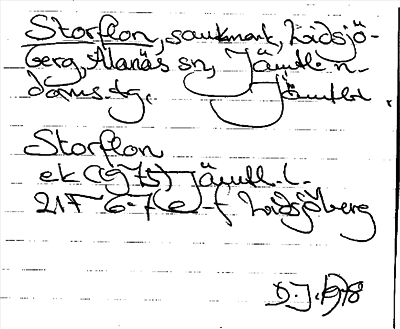 Storflon, sankmark, Lidsjö-
berg, Alanäs sn, Jämtl. n.
doms. tg, Jämtl. l.
Storflon
ek (1975) Jämtl. l.
21F 6-7 e-f Lidsjöberg
D.J. 1978